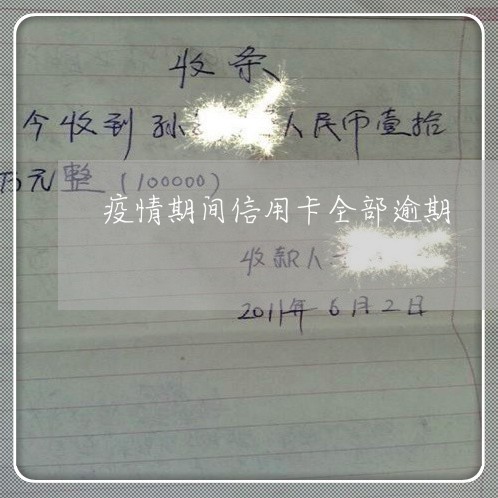 收条
今收到孙 人民币壹拾
万元整（100000）
疫情期间信用卡全部逾期
收款人
2011年6月2日